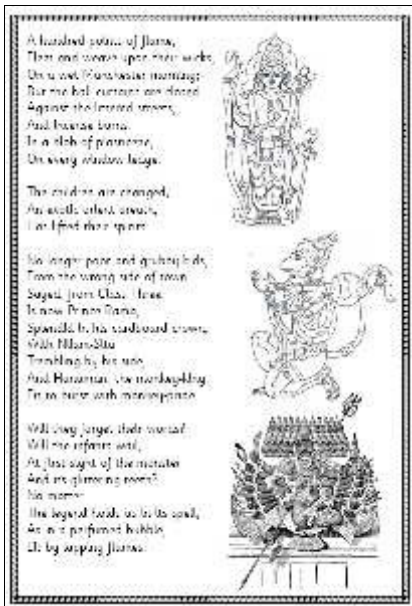 A hundred points of flame,
Fleet and weave upon their wicks,
On a wet Manchester morning;
But the hall curtains are closed
Against the littered streets,
And Incense burns,
In a blob of plasticene,
On every window ledge.
The children are changed,
An exotic orient breath,
Has lifted their spirits
No longer poor and grubby kids,
From the wrong side of town
Sayed, from Class Three
Is now Prince Rama,
Splendid in his cardboard crown,
With Sita
Trembling by his side
And Hanuman, the monkey-king
Fit to burst with monkey-pride
Will they forget their words?
Will the infants wail,
At first sight of the monster
And its glittering teeth?
No matter
The legend holds us in its spell,
As in a perfumed bubble,
Lit by lapping flames.